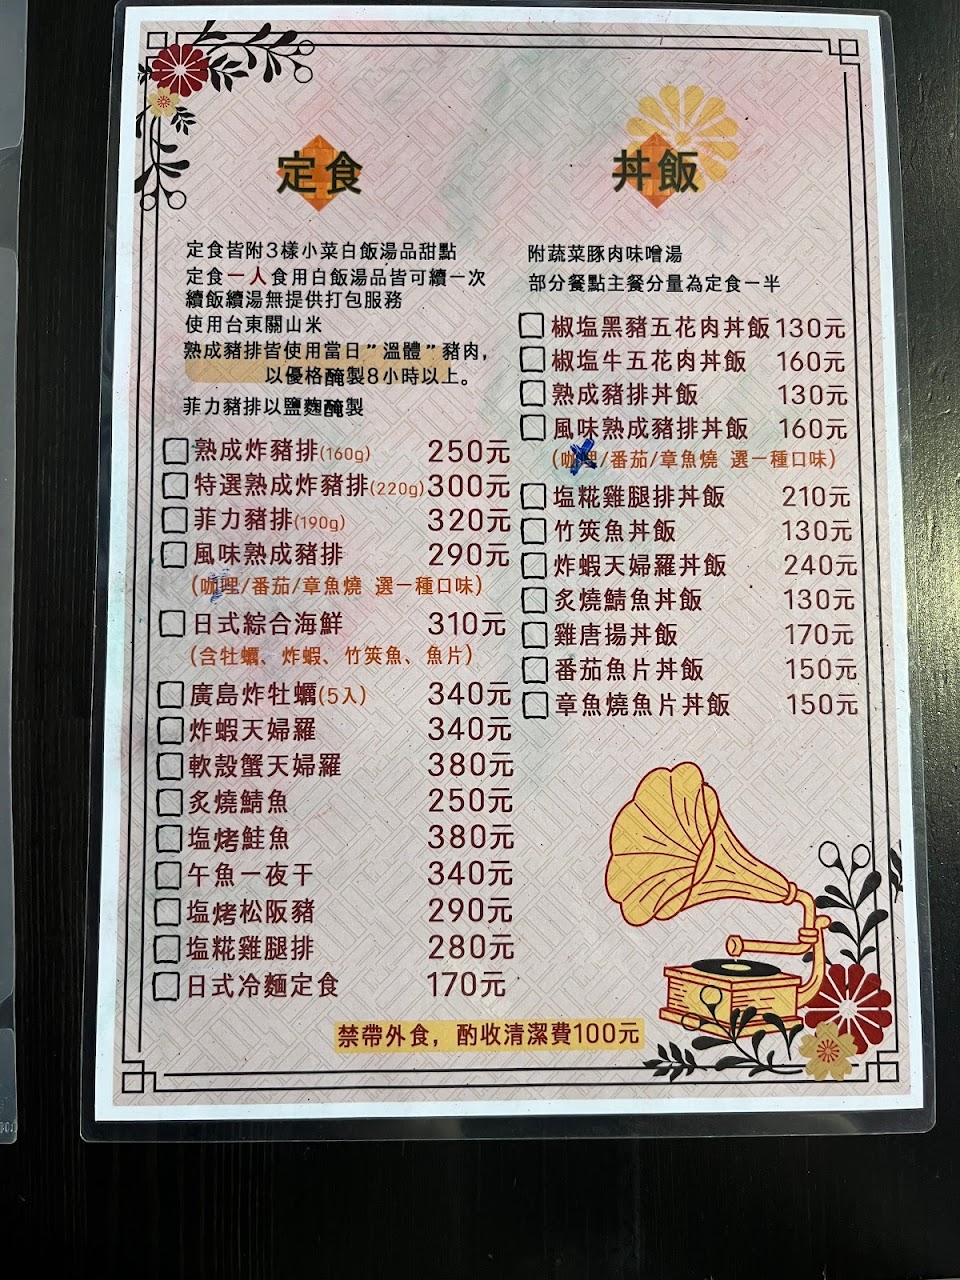 定食
定食皆附3樣小菜白飯湯品甜點
定食一人食用白飯湯品皆可續一次
續飯續湯無提供打包服務
使用台東關山米
熟成豬排皆使用當日"溫體"豬肉，
以優格醃製8小時以上。
菲力豬排以鹽麴醃製
熟成炸豬排(160g) 250元
特選熟成炸豬排(220g) 300元
菲力豬排(190g) 320元
風味熟成豬排 290元
(咖哩/番茄/章魚燒 選一種口味)
日式綜合海鮮 310元
(含牡蠣、炸蝦、竹筴魚、魚片)
廣島炸牡蠣(5入) 340元
炸蝦天婦羅 340元
軟殼蟹天婦羅 380元
炙燒鯖魚 250元
塩烤鮭魚 380元
午魚一夜干 340元
塩烤松阪豬 290元
塩糀雞腿排 280元
日式冷麵定食 170元
丼飯
附蔬菜豚肉味噌湯
部分餐點主餐分量為定食一半
椒塩黑豬五花肉丼飯 130元
椒塩牛五花肉丼飯 160元
熟成豬排丼飯 130元
風味熟成豬排丼飯 160元
(咖哩/番茄/章魚燒 選一種口味)
塩糀雞腿排丼飯 210元
竹筴魚丼飯 130元
炸蝦天婦羅丼飯 240元
炙燒鯖魚丼飯 130元
雞唐揚丼飯 170元
番茄魚片丼飯 150元
章魚燒魚片丼飯 150元
禁帶外食，酌收清潔費100元